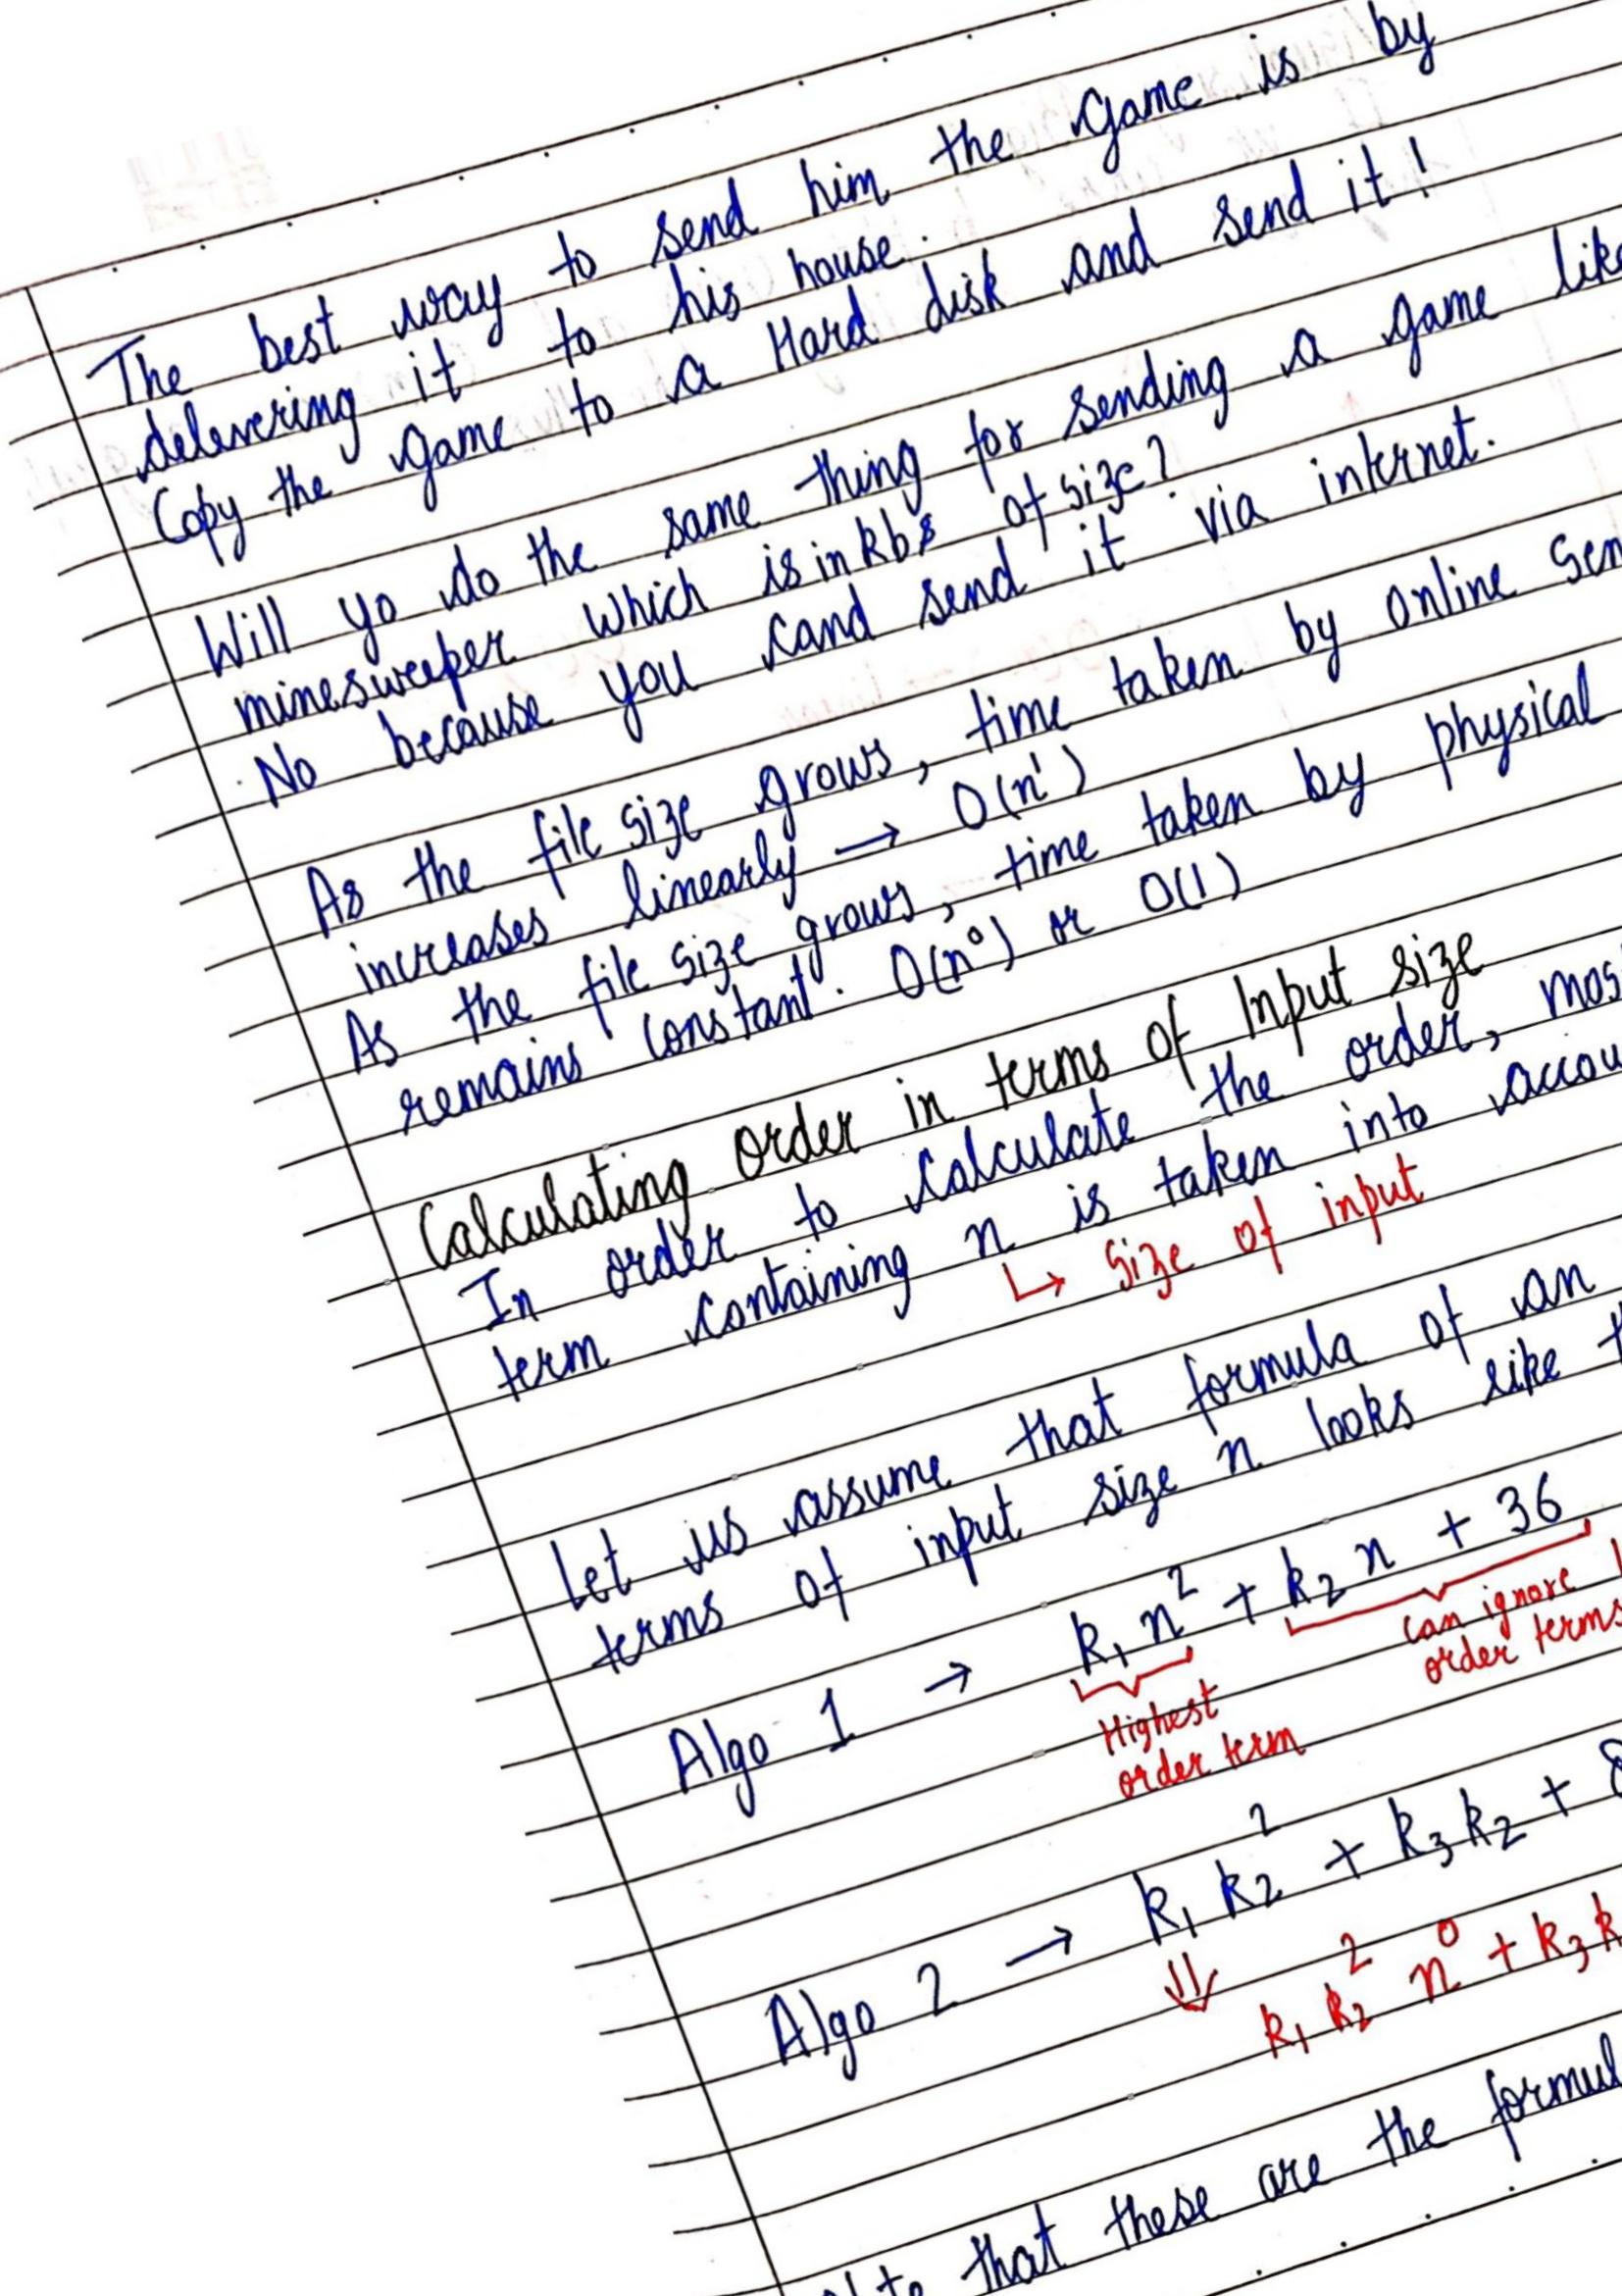 The best way to send him the game is by
delevering it to his house.
Copy the game to a Hard disk and send it!
Will yo do the same thing for sending a game like
minesweeper which is in kbs of size?
No because you cand send it via internet.
As the file size grows, time taken by online sen
increases linearly → O(n¹)
As the file size grows, time taken by physical
remains constant. O(n⁰) or O(1)
Calculating Order in terms of Input size
In order to calculate the order, mos
term containing n is taken into accou
↳ Size of input
Let us assume that formula of an
terms of input size n looks like t
Algo 1 → k₁n² + k₂n + 36
Highest
order term
can ignore
order terms
Algo 2 → k₁k₂² + k₃k₂ + 8
⇓ k₁k₂²n⁰ + k₃k
that these are the formul